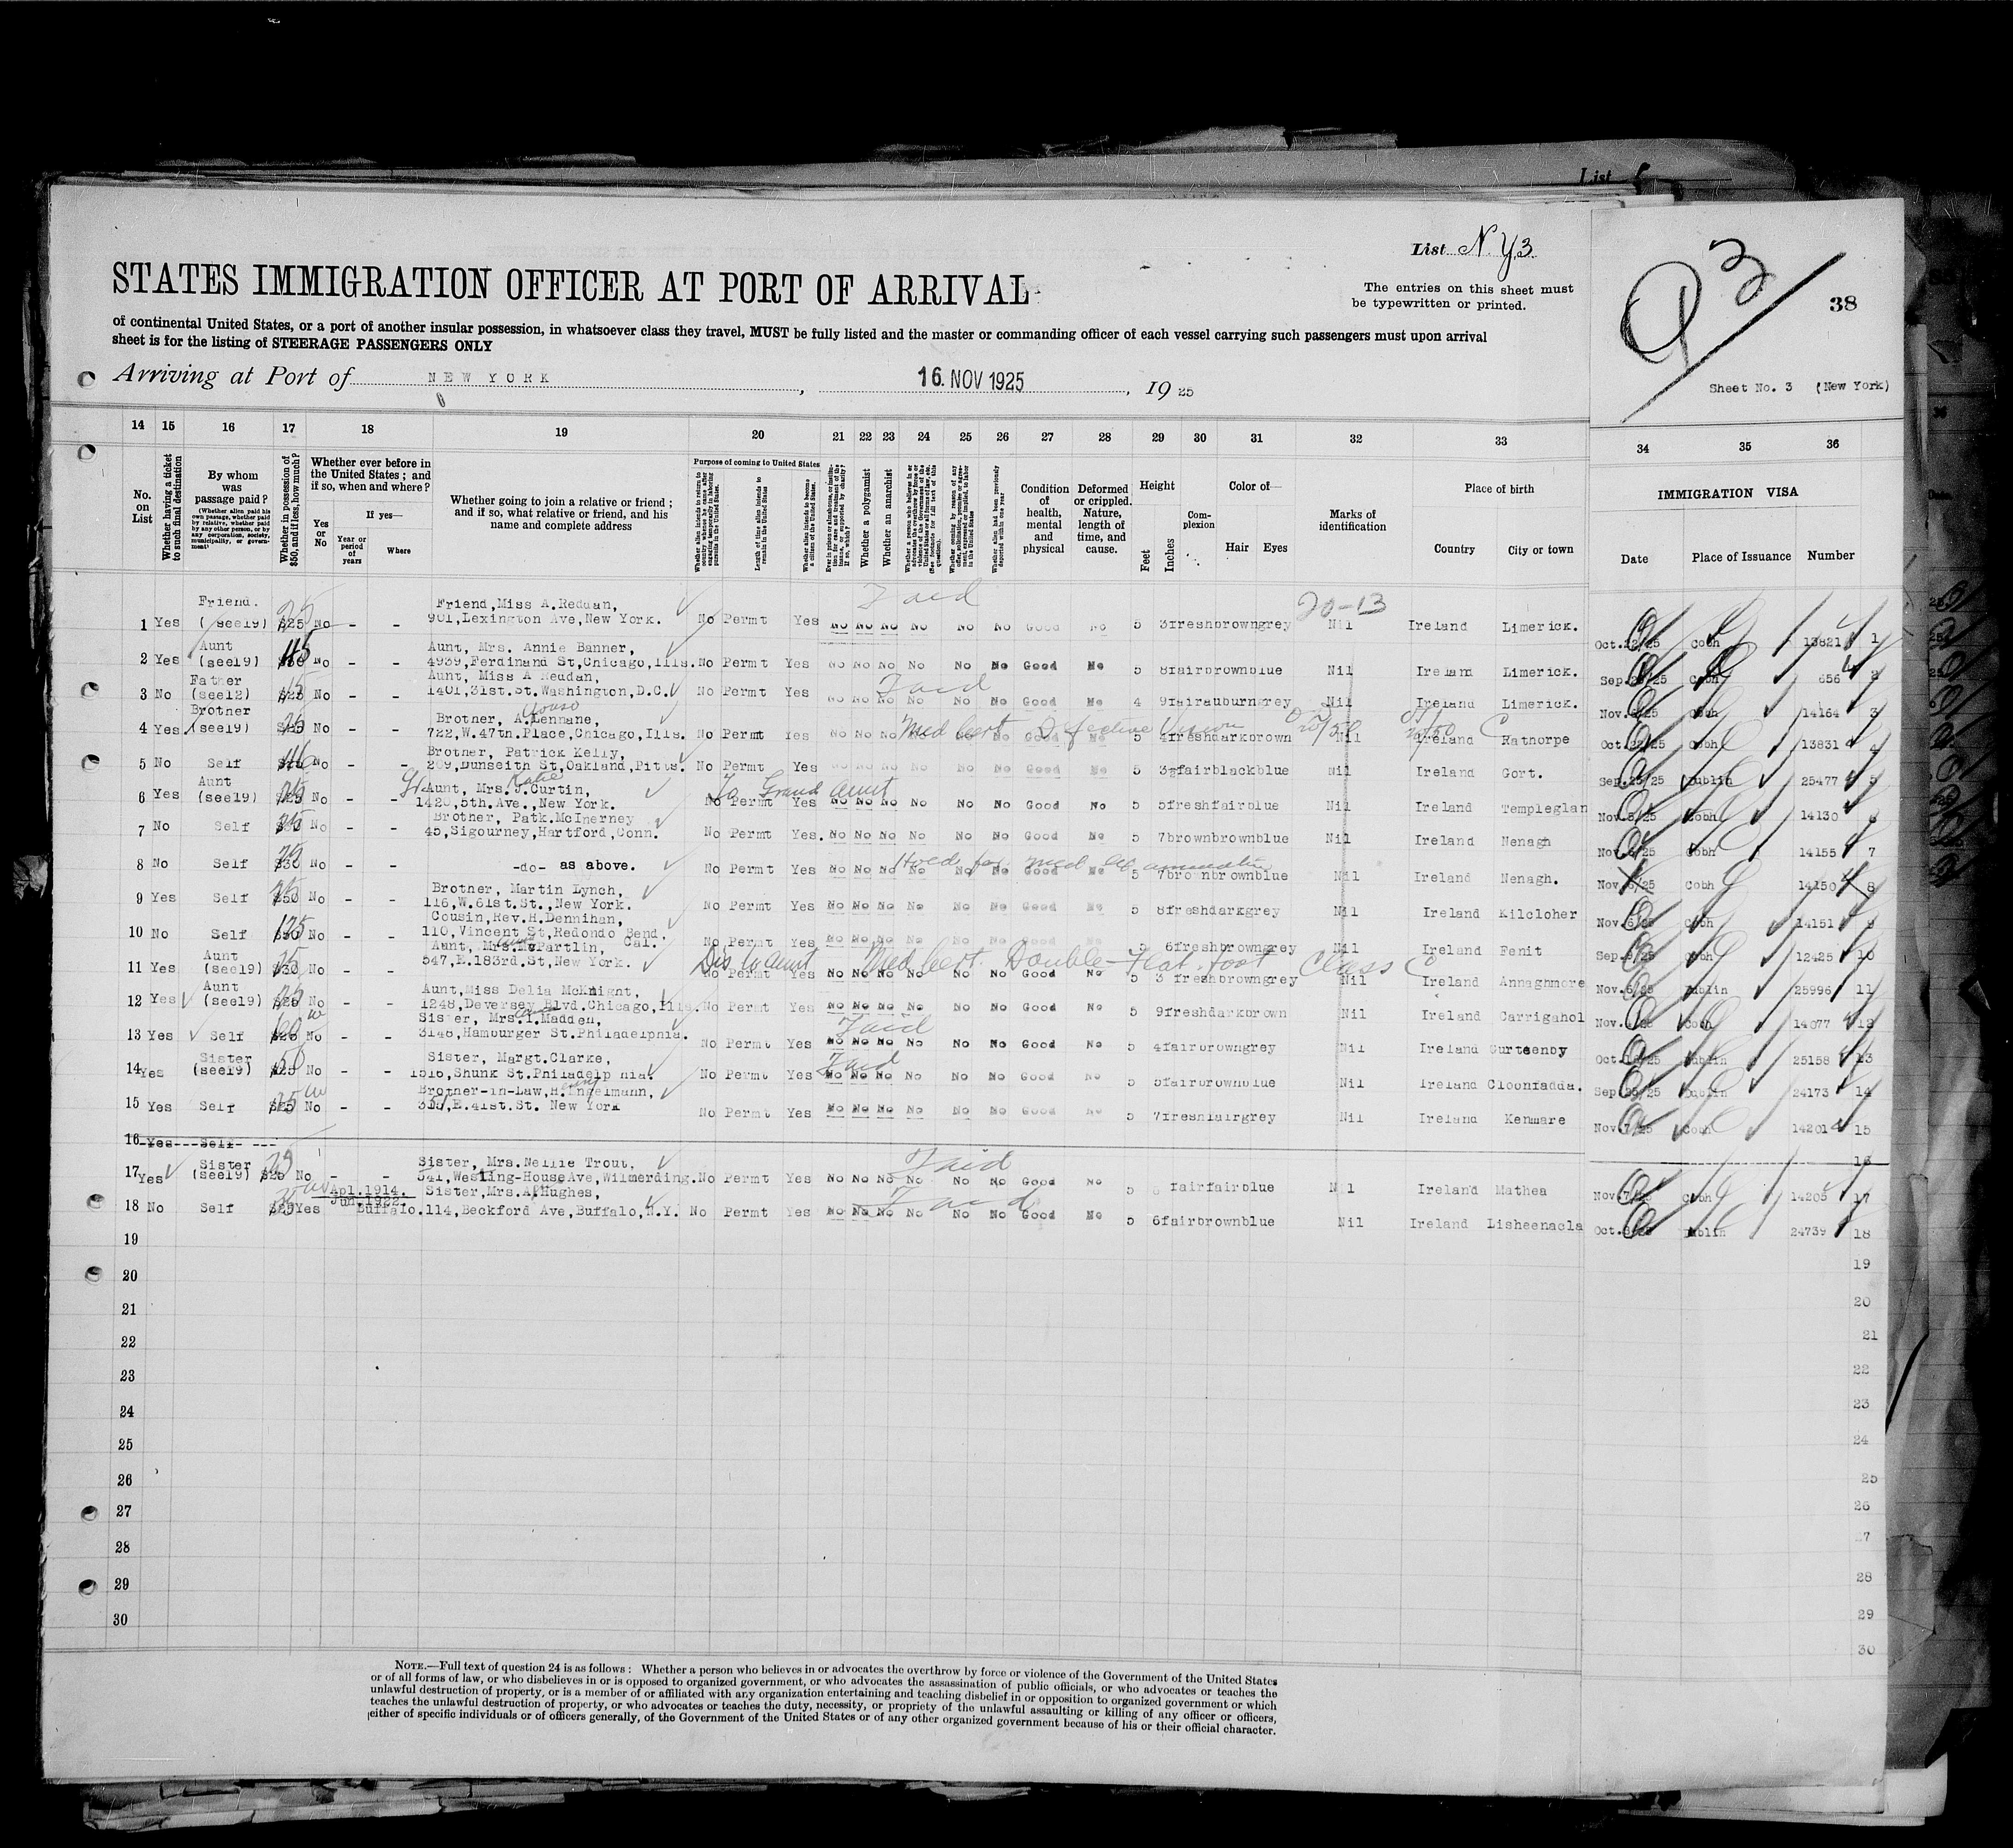 List
List N.Y.3
STATES IMMIGRATION OFFICER AT PORT OF ARRIVAL
The entries on this sheet must
be typewritten or printed.
38
of continental United States, or a port of another insular possession, in whatsoever class they travel, MUST be fully listed and the master or commanding officer of each vessel carrying such passengers must upon arrival
sheet is for the listing of STEERAGE PASSENGERS ONLY
Arriving at Port of NEW YORK, 16. NOV 1925, 1925
Sheet No. 3 (New York)
14 15 16 17 18 19 20 21 22 23 24 25 26 27 28 29 30 31 32 33 34 35 36
No. on List
Whether having a ticket to such final destination
By whom was passage paid?
(Whether alien paid his own passage, whether paid by relative, whether paid by any other person, or by any corporation, society, municipality, or government)
Whether in possession of $50, and if less, how much?
Whether ever before in the United States; and if so, when and where?
Yes or No
If yes—
Year or period of years
Where
Whether going to join a relative or friend; and if so, what relative or friend, and his name and complete address
Purpose of coming to United States
Whether alien intends to return to country whence he came after engaging temporarily in laboring pursuits in the United States.
Length of time alien intends to remain in the United States
Whether alien intends to become a citizen of the United States.
Whether a polygamist
Whether an anarchist
Condition of health, mental and physical
Deformed or crippled. Nature, length of time, and cause.
Height
Feet
Inches
Color of—
Complexion
Hair
Eyes
Marks of identification
Place of birth
Country
City or town
IMMIGRATION VISA
Date
Place of Issuance
Number
20-13
1 Yes Friend. (see19) $25 No - - Friend,Miss A.Reddan, 901,Lexington Ave,New York. No Permt Yes No No No No No No Good No 5 3 fresh brown grey Nil Ireland Limerick. Oct.22/25 Cobh 13821 1
2 Yes Aunt (see19) No - - Aunt, Mrs. Annie Banner, 4939,Ferdinand St,Chicago,Ills. No Permt Yes No No No No No No Good No 5 8 fair brown blue Nil Ireland Limerick. Cobh 656 2
3 No Father (see12) $25 No - - Aunt, Miss A Reddan, 1401,31st.St.Washington,D.C. No Permt Yes No No No No No No Good No 4 9 fair auburn grey Nil Ireland Limerick. Cobh 14164 3
Med Cert Defective Vision
4 Yes Brother (see19) No - - Brother, A.Lennane, 722,W.47th.Place,Chicago,Ills. No Permt Yes No No No No Good No 5 4 fresh dark brown Nil Ireland Rathorpe Oct.22/25 Cobh 13831 4
5 No Self No - - Brother, Patrick Kelly, 209,Dunseith St,Oakland,Pitts. No Permt Yes No No No No No No Good No 5 3 fair black blue Nil Ireland Gort. Sep.25/25 Dublin 25477 5
To Grand Aunt
6 Yes Aunt (see19) $25 No - - Aunt, Mrs.J.Curtin, Katie 1420,5th.Ave.,New York. No Permt Yes No No No No No No Good No 5 5 fresh fair blue Nil Ireland Templeglan Nov.5/25 Cobh 14130 6
7 No Self No Brother, Patk.McInerney 45,Sigourney,Hartford,Conn. No Permt Yes. No No No No No No Good No 5 7 brown brown blue Nil Ireland Nenagh Nov.6/25 Cobh 14155 7
8 No Self $30 No - - -do- as above. No Permt Yes No No No No No No Good No 5 7 brown brown blue Nil Ireland Nenagh. Nov.6/25 Cobh 14150 8
9 Yes Self $50 No - - Brother, Martin Lynch, 116,W.61st.St.,New York. No Permt Yes No No No No No No Good No 5 8 fresh dark grey Nil Ireland Kilcloher Nov.6/25 Cobh 14151 9
10 No Self No - - Cousin,Rev.H.Dennihan, 110,Vincent St,Redondo Bend. Cal. No Permt Yes No No No No No No Good No 5 6 fresh brown grey Nil Ireland Fenit Cobh 12425 10
Dis to Aunt Med Cert. Double-Flat.foot Class C
11 Yes Aunt (see19) $30 No - - Aunt, Mrs.McPartlin, 547,E.183rd.St,New York. No Permt Yes No No No No No No Good No 5 3 fresh brown grey Nil Ireland Annaghmore Nov.6/25 Dublin 25996 11
12 Yes Aunt (see19) $25 No - - Aunt,Miss Delia McKnight, 1248,Deversey Blvd.Chicago,Ills. No Permt Yes No No No No No No Good No 5 9 fresh dark brown Nil Ireland Carrigahol Cobh 14077 12
13 Yes Self No - - Sister, Mrs.I.Madden, 3145,Hamburger St.Philadelphia. No Permt Yes No No No No No No Good No 5 4 fair brown grey Nil Ireland Gurteenby Dublin 25158 13
14 Yes Sister (see19) $25 No - - Sister, Margt.Clarke, 1516,Shunk St.Philadelphia. No Permt Yes No No No No No No Good No 5 5 fair brown blue Nil Ireland Cloonfadda. Dublin 24173 14
15 Yes Self No - - Brother-in-Law,H.Engelmann, E.41st.St. New York No Permt Yes No No No No No No Good No 5 7 fresh fair grey Nil Ireland Kenmare Nov.7/25 Cobh 14201 15
16 Yes Self 16
17 Yes Sister (see19) $25 No - - Sister, Mrs.Nellie Trout, 541,Westing-HouseAve,Wilmerding. No Permt Yes No No No No No No Good No 5 fair fair blue Nil Ireland Mathea Nov.7/25 Cobh 14205 17
18 No Self $25 Yes Apl.1914. Jun.1922. Buffalo. Sister,Mrs.A.Hughes, 114,Beckford Ave,Buffalo,N.Y. No Permt Yes No No No No No No Good No 5 6 fair brown blue Nil Ireland Lisheenacla Dublin 24739 18
19 19
20 20
21 21
22 22
23 23
24 24
25 25
26 26
27 27
28 28
29 29
30 30
NOTE.—Full text of question 24 is as follows: Whether a person who believes in or advocates the overthrow by force or violence of the Government of the United States
or of all forms of law, or who disbelieves in or is opposed to organized government, or who advocates the assassination of public officials, or who advocates or teaches the
unlawful destruction of property, or is a member of or affiliated with any organization entertaining and teaching disbelief in or opposition to organized government or which
teaches the unlawful destruction of property, or who advocates or teaches the duty, necessity, or propriety of the unlawful assaulting or killing of any officer or officers,
either of specific individuals or of officers generally, of the Government of the United States or of any other organized government because of his or their official character.